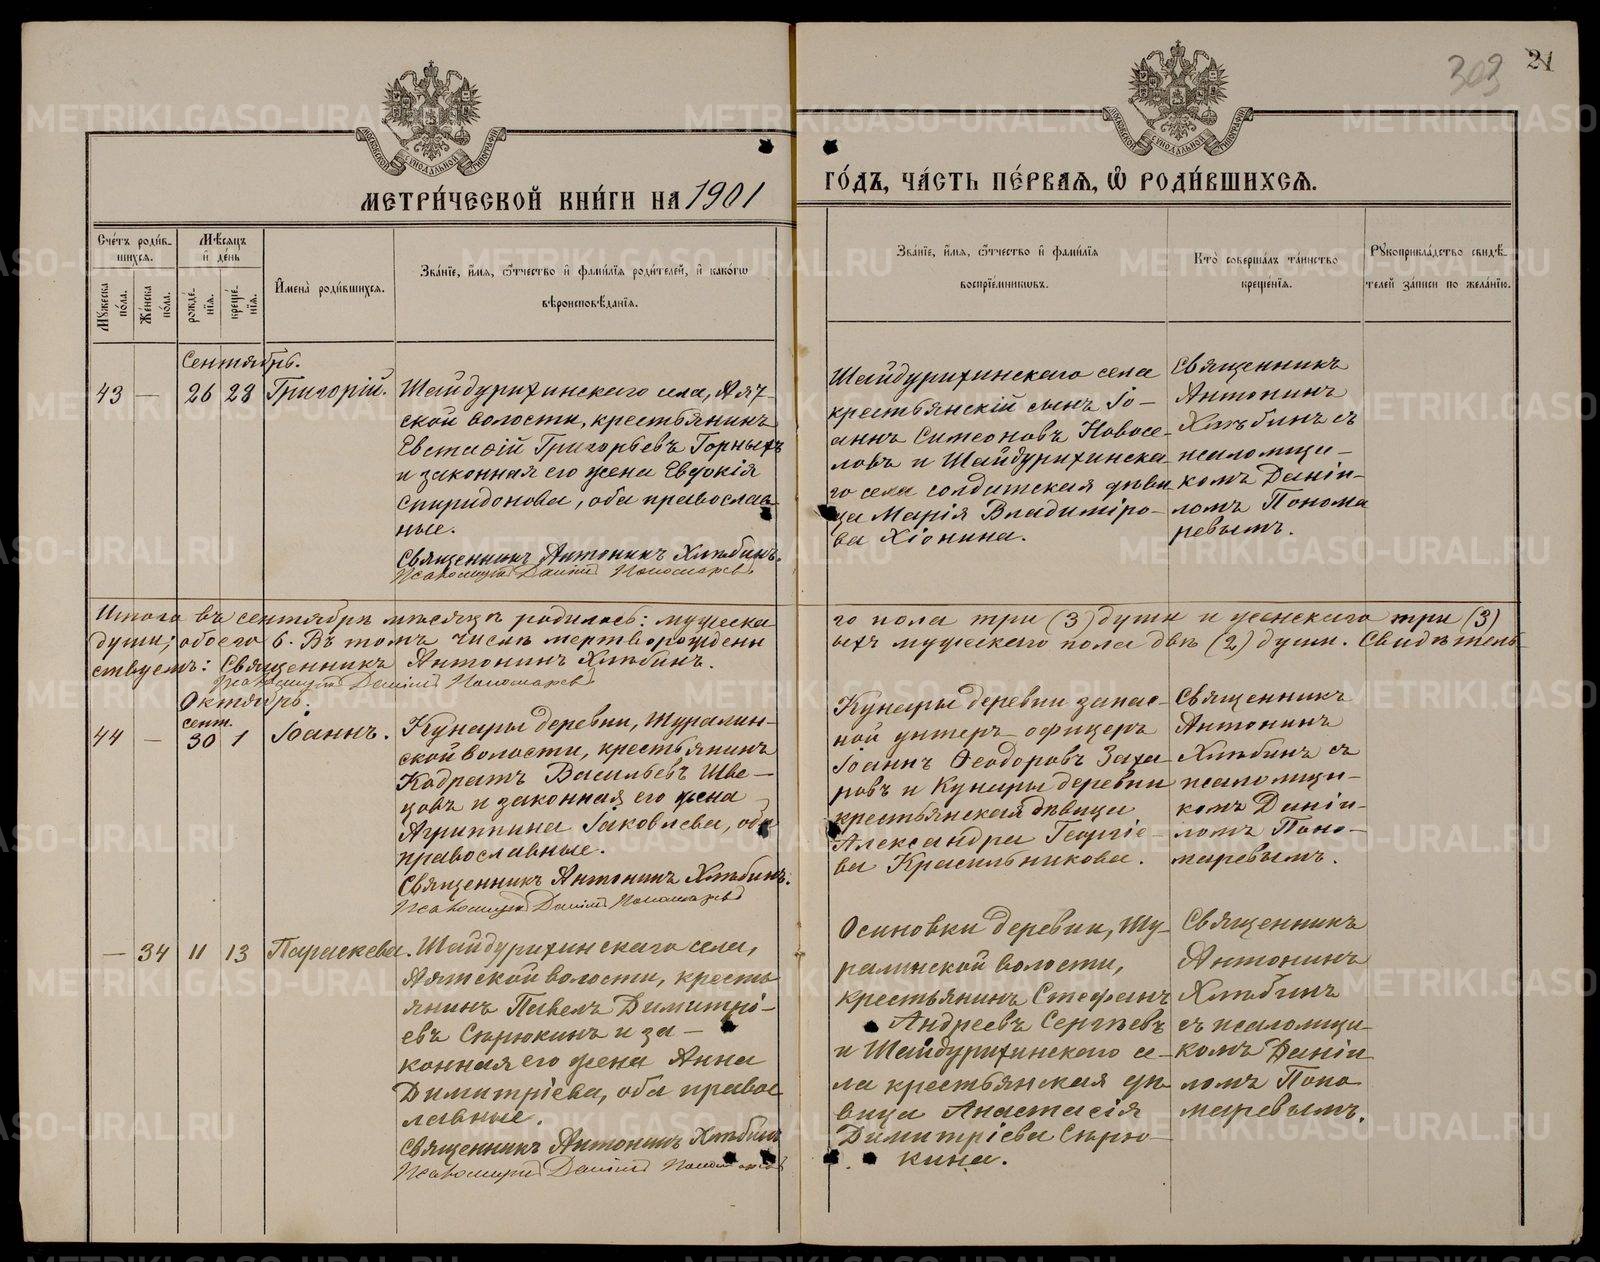 303
21
МЕТРИ́ЧЕСКОЙ КНИ́ГИ НА 1901
ГО́ДЪ, ЧА́СТЬ ПЕ́РВАЯ, Ѿ РОДИ́ВШИХСЯ.
Сче́тъ роди́в-
шихся.
Мꙋ́жеска по́ла.
Же́нска по́ла.
Мѣ́сяцъ
и҆ де́нь
рожде́-
нїя.
креще́-
нїя.
И҆мена̀ роди́вшихся.
Зва́нїе, и҆́мя, ѻ҆́тчество и҆ фами́лїя роди́телей, и҆ како́гѡ
вѣроисповѣ́данїя.
Зва́нїе, и҆́мя, ѻ҆́тчество и҆ фами́лїя
воспрїе́мникѡвъ.
Кто̀ соверша́лъ та́инство
креще́нїя.
Рꙋкоприкла́дство свидѣ́-
телей за́писи по жела́нїю.
Сентябрь.
43
—
26
28
Григорій.
Шайдурихинскаго села, Аят-
ской волости, крестьянинъ
Евстафій Григорьевъ Горныхъ
и законная его жена Евдокія
Спиридонова, оба православ
ные.
Священникъ Антонинъ Хлѣбинъ.
Псаломщикъ Даніилъ Пономаревъ
Шайдурихинскаго села
крестьянскій сынъ Іо-
аннъ Симеоновъ Новосе-
ловъ и Шайдурихинска
го села солдатская дѣви
ца Марія Владиміро-
ва Хіонина.
Священникъ
Антонинъ
Хлѣбинъ съ
псаломщи-
комъ Даніи-
ломъ Понома
ревымъ.
Итого въ сентябрѣ мѣсяцѣ родилось: мужеска
го пола три (3) души и женскаго три (3)
души; обоего 6. Въ томъ числѣ мертворожденн
ыхъ мужескаго пола двѣ (2) души. Свидѣтель
ствуемъ: Священникъ Антонинъ Хлѣбинъ.
Псаломщикъ Даніилъ Пономаревъ
Октябрь.
44
—
сент.
30
1
Іоаннъ.
Кунары деревни, Шуралин-
ской волости, крестьянинъ
Кодратъ Васильевъ Шве-
цовъ и законная его жена
Агриппина Іаковлева, оба
православные.
Священникъ Антонинъ Хлѣбинъ.
Псаломщикъ Даніилъ Пономаревъ
Кунары деревни запас-
ной унтеръ-офицеръ
Іоаннъ Ѳеодоровъ Заха-
ровъ и Кунары деревни
крестьянская дѣвица
Александра Георгіе-
ва Красильникова.
Священникъ
Антонинъ
Хлѣбинъ съ
псаломщи-
комъ Даніи-
ломъ Поно-
маревымъ.
—
34
11
13
Параскева.
Шайдурихинскаго села,
Аятской волости, кресть
янинъ Павелъ Димитрі-
евъ Сюрюкинъ и за-
конная его жена Анна
Димитріева, оба правос
лавные.
Священникъ Антонинъ Хлѣбинъ
Псаломщикъ Даніилъ Пономаревъ
Осиновки деревни, Шу-
ралинской волости,
крестьянинъ Стефанъ
Андреевъ Сергѣевъ
и Шайдурихинскаго се-
ла крестьянская дѣ
вица Анастасія
Димитріева Сюрю-
кина.
Священникъ
Антонинъ
Хлѣбинъ
съ псаломщи-
комъ Даніи
ломъ Поно
маревымъ.